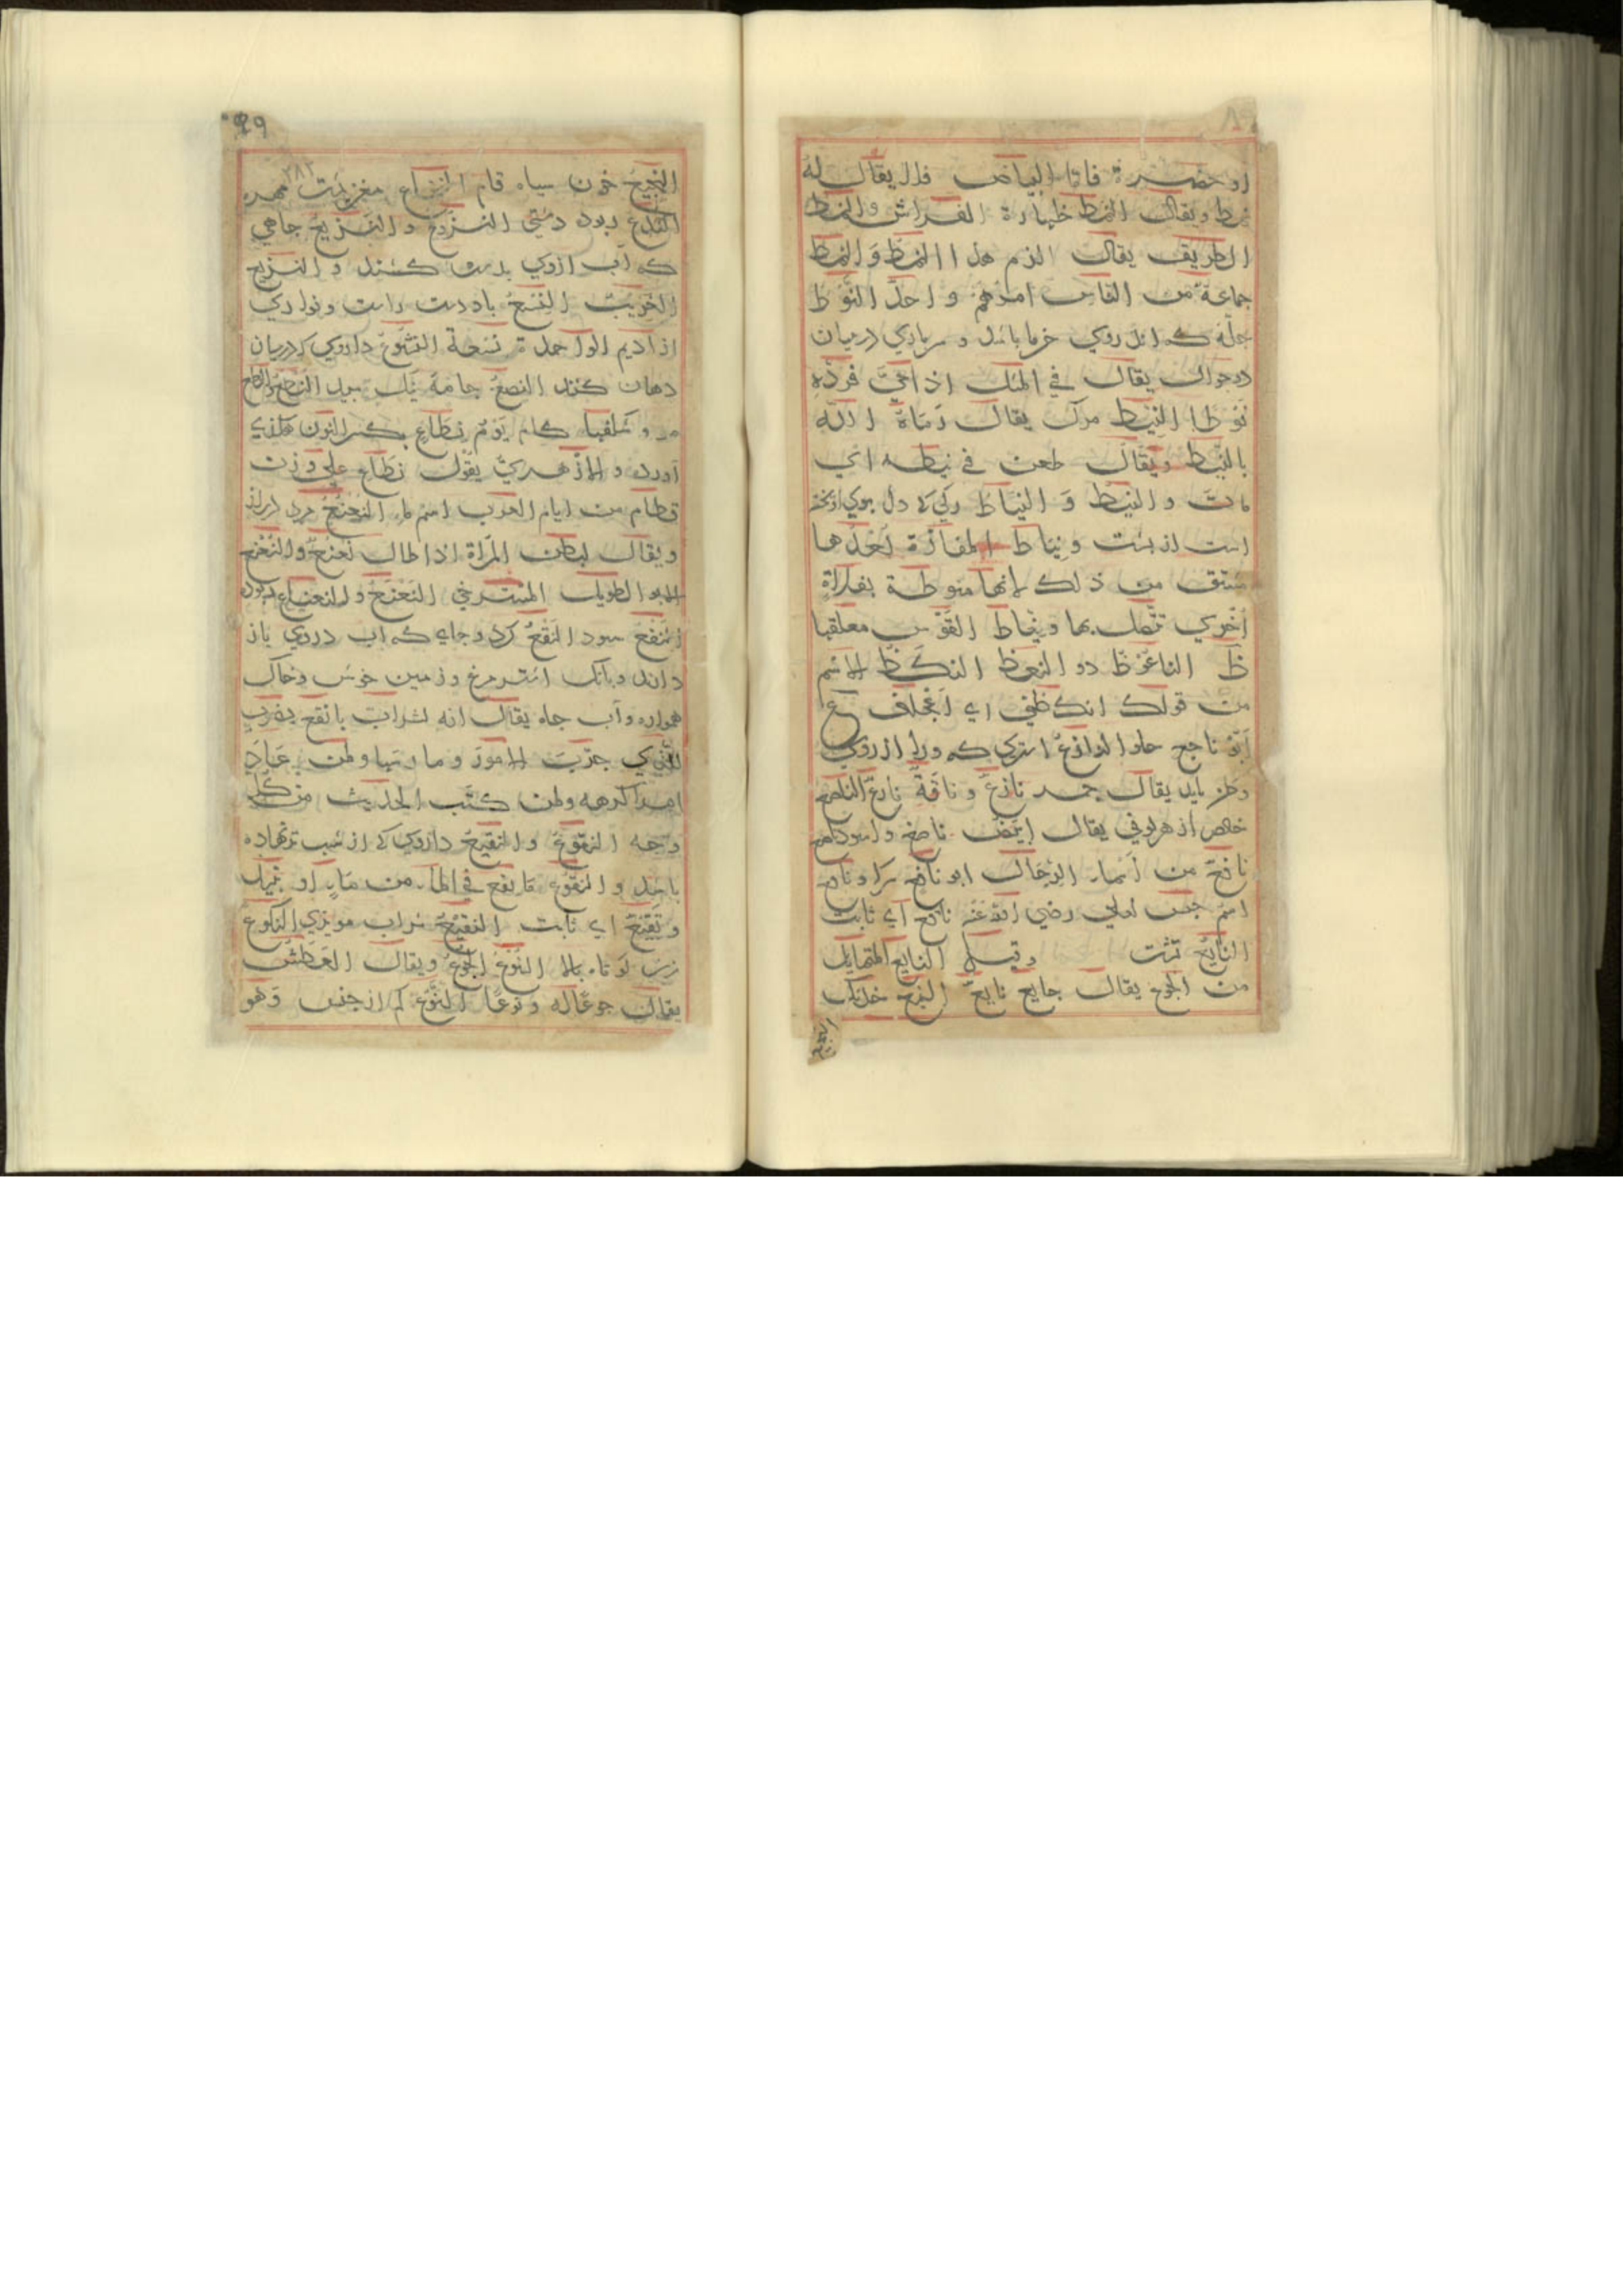 او خضرة فاما البياض فلا يقال له
نمط ويقال النمط ظهارة الفراش والنمط
الطريق يقال الزم هذا النمط والنمط
جماعة من الناس امرهم واحد النوط
جله كه اندروي خرما باشد و سرباري درميان
دو جوال يقال في المثل اذا اعيى فزده
نوطا النيط مرك يقال رماه الله
بالنيط ويقال طعن في نيطه اي
مات والنيط و النياط ركي كه دل بوي اويخته
است از پشت ونياط المفازة بعدها
مشتق من ذلك لانها منوطة بفلاة
اخري تتصل بها ونياط القوس معلقها
ظ الناعوظ دو النعظ النكظ الاسم
من قولك انكظني اي اعجلني ع
ابو ناجع حلوا النازع اشتري كه ورا ارزوي
وطن بايد يقال جمل نازع وناقة نازع الناصع
خالص از هرلوني يقال ابيض ناصع واسود ناصع
نافع من اسماء الرجال ابو نافع سركه وناقع
اسم جني لعلي رضي الله عنه ناقع اي ثابت
النايع تشنه وقيل النايع المتمايل
من الجوع يقال جايع نايع النبع خدنك
النجيع
النجيع خون سياه فام النخاع مغز پشت مهره
الندع پودنه دشتي النزوع والنزيع چاهي
كه آب ازوي بدست كشند و النزيع
الغريب النسع باد دست راست ونواري
از اديم الواحدة نسعة النشوع داروي كه درميان
دهان كنند النصع جامهٔ نيك سپيد النطع والنطع
و شلفها كام يوم نطاع بكسر النون
آورده والازهري يقول نطاع علي وزن
قطام من ايام العرب اسم ماء النعنع مرد دراز
ويقال لبظر المرأة اذا طال نعنع والنعنع
الطويل المسترخي النعنع والنعناع پودن
النفع سود النقع كرد وجاي كه اب درروي باز
داند وبانك اشترمرغ وزمين خوش وخاك
هموار وآب چاه يقال انه لشراب بانقع يضرب
للذي جرب الامور ومارسها ولمن عاود
امرا كرهه ولمن كتب الحديث من كل
وجه النقوع والنقيع داروي كه از شب ترنهاده
باشد والنقوع ما ينقع في الماء من ماء او نبيذ
ونقيع اي ثابت النقيع شراب مويزي النكوع
زن كوتاه بالا النوع الجوع ويقال العطش
يقال جوعا له ونوعا النوع كم از جنس وهو